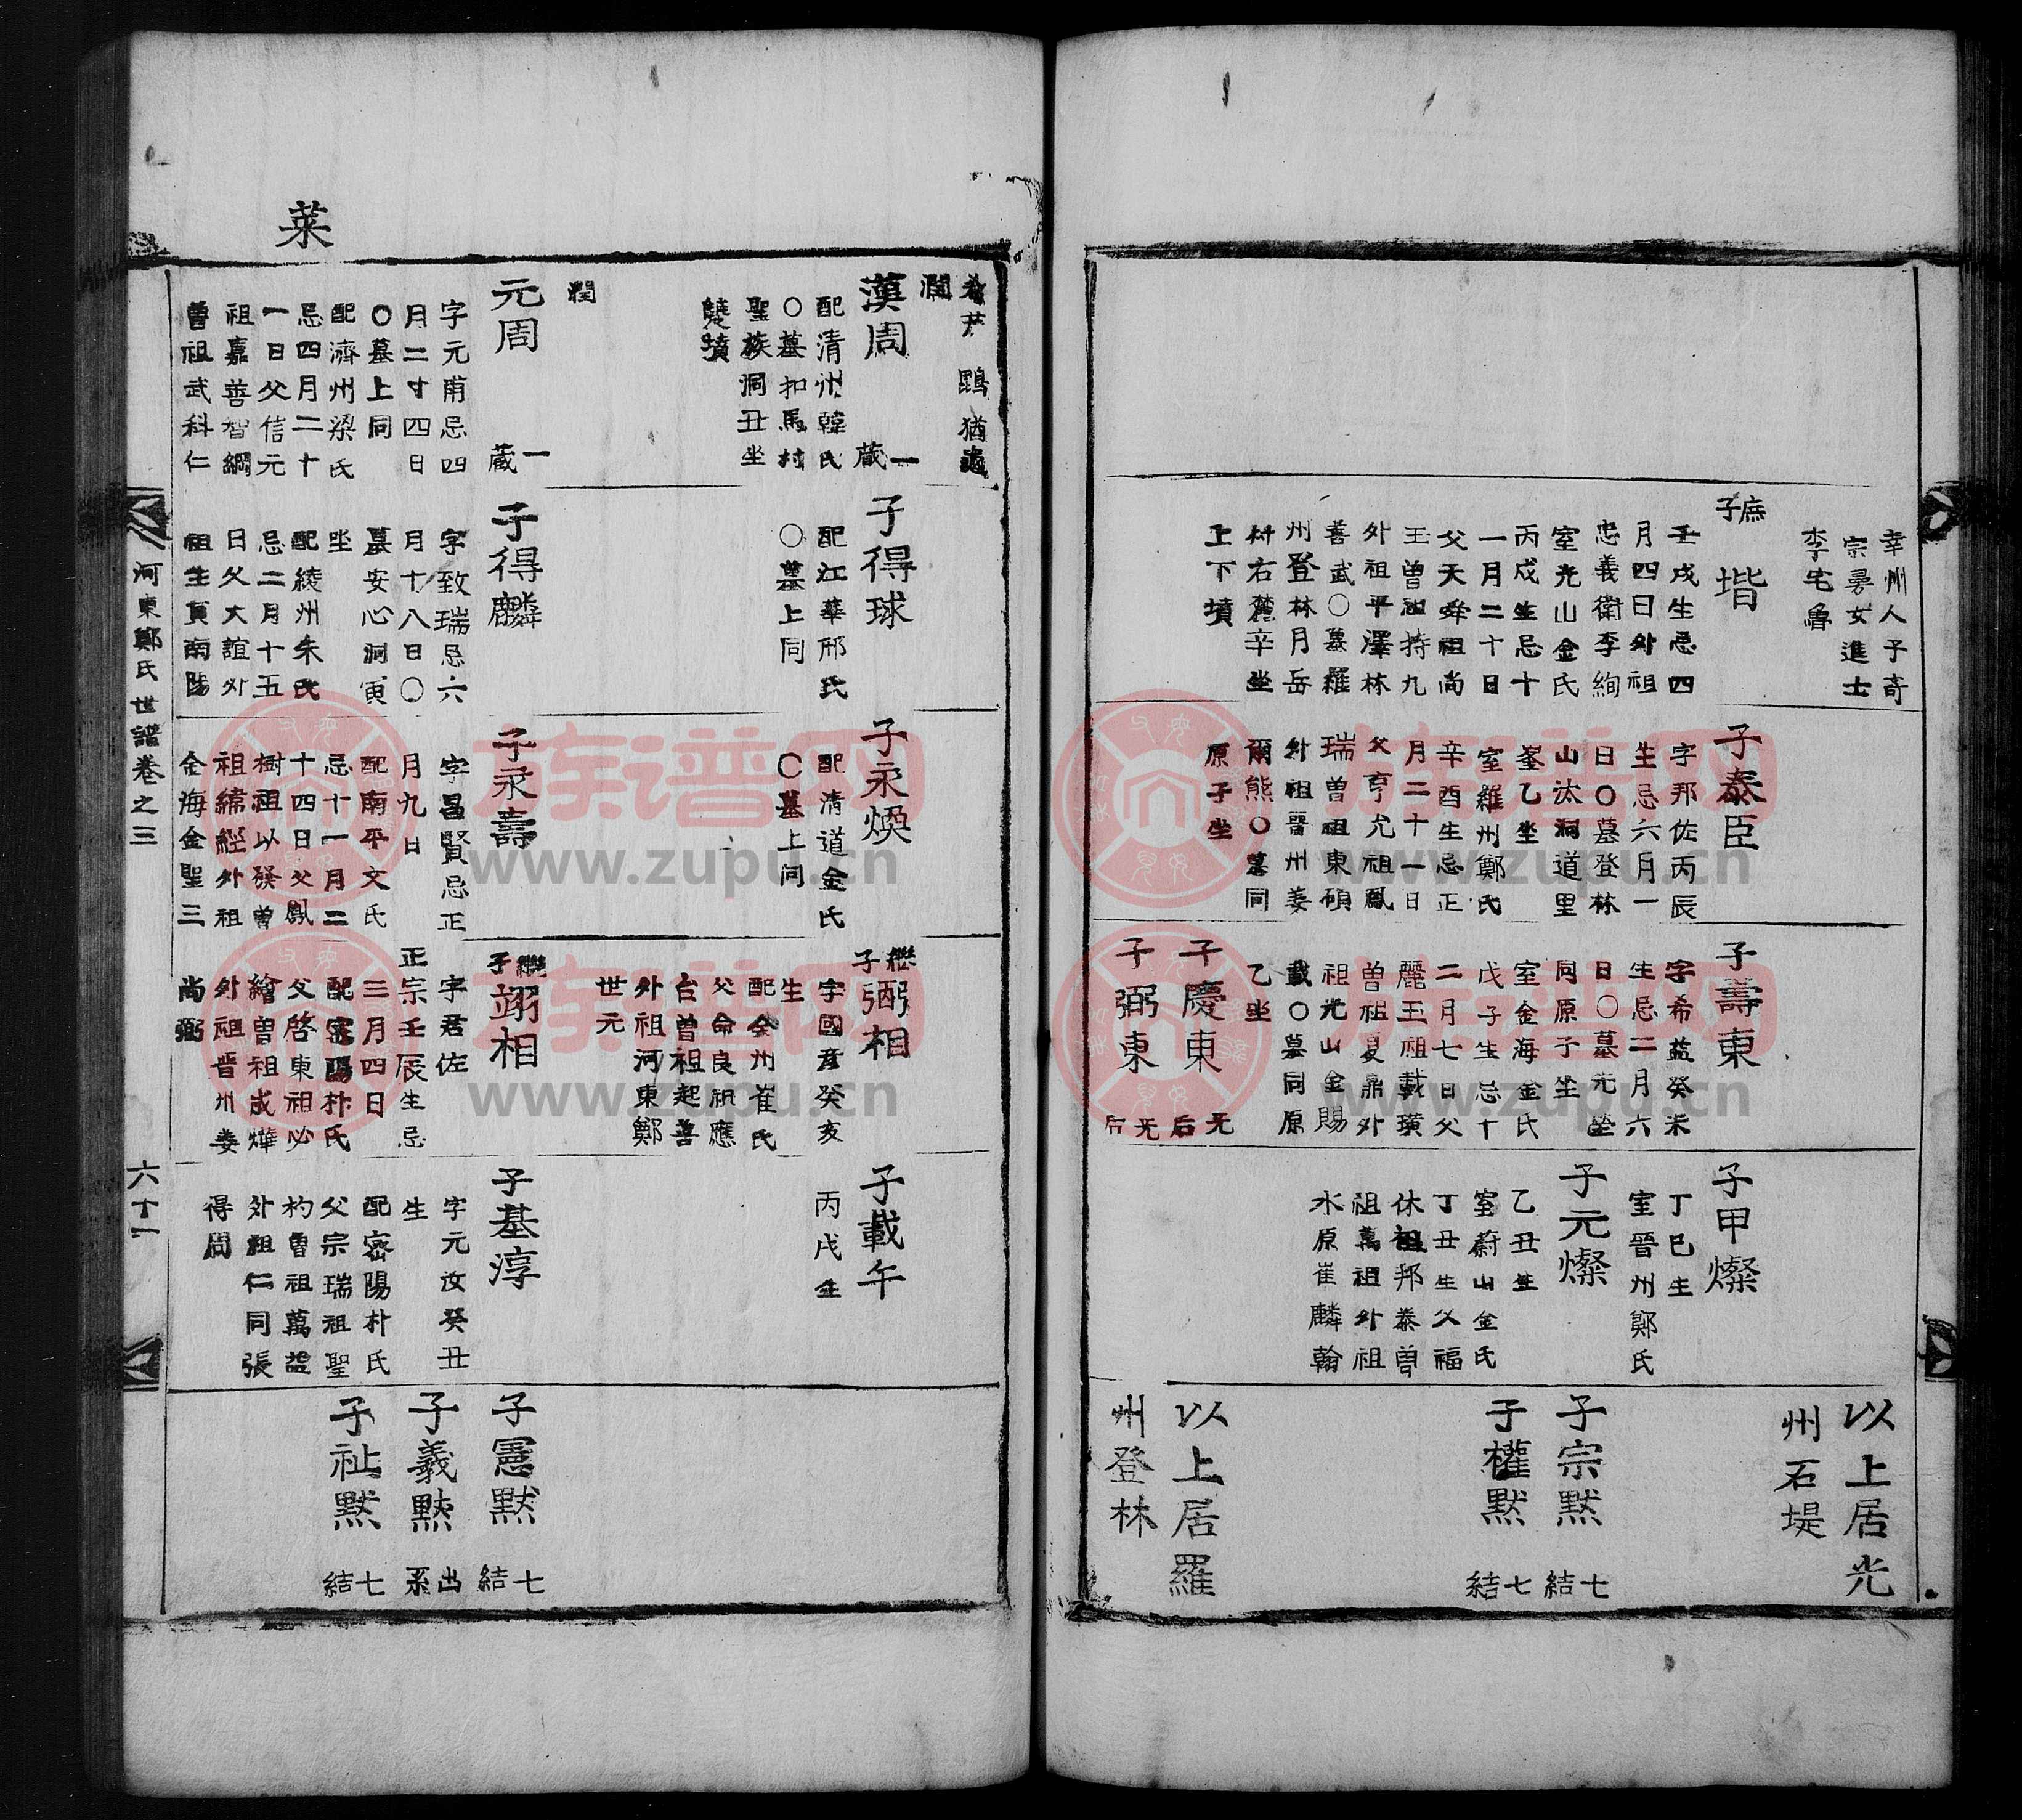 幸州人子奇
宗㬌女進士
李宅魯
庶
子 堦
壬戌生忌四
月四日外祖
忠義衛李絢
室光山金氏
丙戌生忌十
一月二十日
父天舜祖尚
玉曾祖持九
外祖平澤林
善武〇墓羅
州登林月岳
村右麓辛坐
上下墳
子泰臣
字邦佐丙辰
生忌六月一
日〇墓登林
山汰洞道里
峯乙坐
室羅州鄭氏
辛酉生忌正
月二十一日
父亨允祖鳳
瑞曾祖東碩
外祖晋州姜
爾熊〇墓同
原子坐
子壽東
字希益癸未
生忌二月六
日〇墓先塋
同原子坐
室金海金氏
戊子生忌十
二月七日父
麗玉祖載璜
曾祖夏鼎外
祖光山金賜
載〇墓同原
乙坐
子慶東
无
后
子弼東
无
后
子甲燦
丁巳生
室晉州鄭氏
子元燦
乙丑生
室蔚山金氏
丁丑生父福
休祖邦泰曽
祖萬祖外祖
水原崔麟翰
以上居光
州石堤
子宗黙
七
結
子權黙
七
結
以上居羅
州登林
菜
潤
漢周
一
蔵
配清州韓氏
〇墓扣馬村
聖族洞丑坐
雙墳
潤
元周
一
蔵
字元甫忌四
月二寸四日
〇墓上同
配濟州梁氏
忌四月二十
一日父信元
祖嘉善智綱
曽祖武科仁
子得球
配江華邢氏
〇墓上同
子得麟
字致瑞忌六
月十八日〇
墓安心洞寅
坐
配綾州朱氏
忌二月十五
日父大誼外
祖生員南陽
子永煥
配清道金氏
〇墓上同
子永壽
字昌賢忌正
月九日
配南平文氏
忌十一月二
十四日父鳳
樹祖以發曽
祖緯經外祖
金海金聖三
継
子弼相
字國彦癸亥
生
配全州崔氏
父命良祖應
台曽祖起善
外祖河東鄭
世元
継
子翊相
字君佐
正宗壬辰生忌
三月四日
配密陽朴氏
父啓東祖必
繪曽祖成燁
外祖晋州姜
尚弼
子載午
丙戌生
子基淳
字元汝癸丑
生
配密陽朴氏
父宗瑞祖聖
杓曽祖萬益
外祖仁同張
得周
子憲黙
七
結
子義黙
出
系
子祉黙
七
結
河東鄭氏世譜卷之三
六十一
族谱网
www.zupu.cn
族谱网
www.zupu.cn
族谱网
www.zupu.cn
族谱网
www.zupu.cn